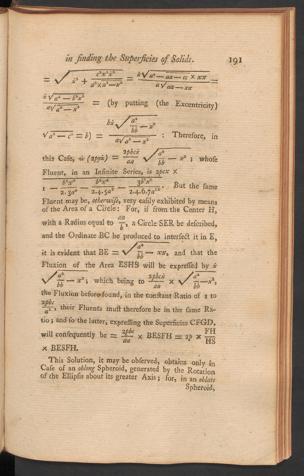 in finding the Superficies of Solids. 191
= √(ẋ² + c²x²ẋ²/(a²×a²−x²)) = ẋ√(a⁴ − aa − cc × xx) / a√(aa − xx) =
ẋ√(a⁴ − b²x²) / a√(a² − x²) = (by putting (the Excentricity)
√(a² − c²) = b) = bẋ√(a⁴/bb − x²) / a√(a² − x²) : Therefore, in
this Case, ẇ (2pyż) = 2pbcẋ/aa √(a⁴/bb − x²; whose
Fluent, in an Infinite Series, is 2pcx ×
1 − b²x²/2.3a⁴ − b⁴x⁴/2.4.5a⁸ − 3b⁶x⁶/2.4.6.7a¹². But the same
Fluent may be, otherwise, very easily exhibited by means
of the Area of a Circle: For, if from the Center H,
with a Radius equal to aa/b, a Circle SER be described,
and the Ordinate BC be produced to intersect it in E,
it is evident that BE = √(a⁴/bb − xx, and that the
Fluxion of the Area ESHB will be expressed by ẋ
√(a⁴/bb − x²; which being to 2pbcẋ/aa × √(a⁴/bb − x²,
the Fluxion before found, in the constant Ratio of 1 to
2pbc/a², their Fluents must therefore be in the same Ra-
tio; and so the latter, expressing the Superficies CFGD,
will consequently be = 2pbc/aa × BESFH = 2p × FH/HS
× BESFH.
This Solution, it may be observed, obtains only in
Case of an oblong Spheroid, generated by the Rotation
of the Ellipsis about its greater Axis; for, in an oblate
Spheroid,